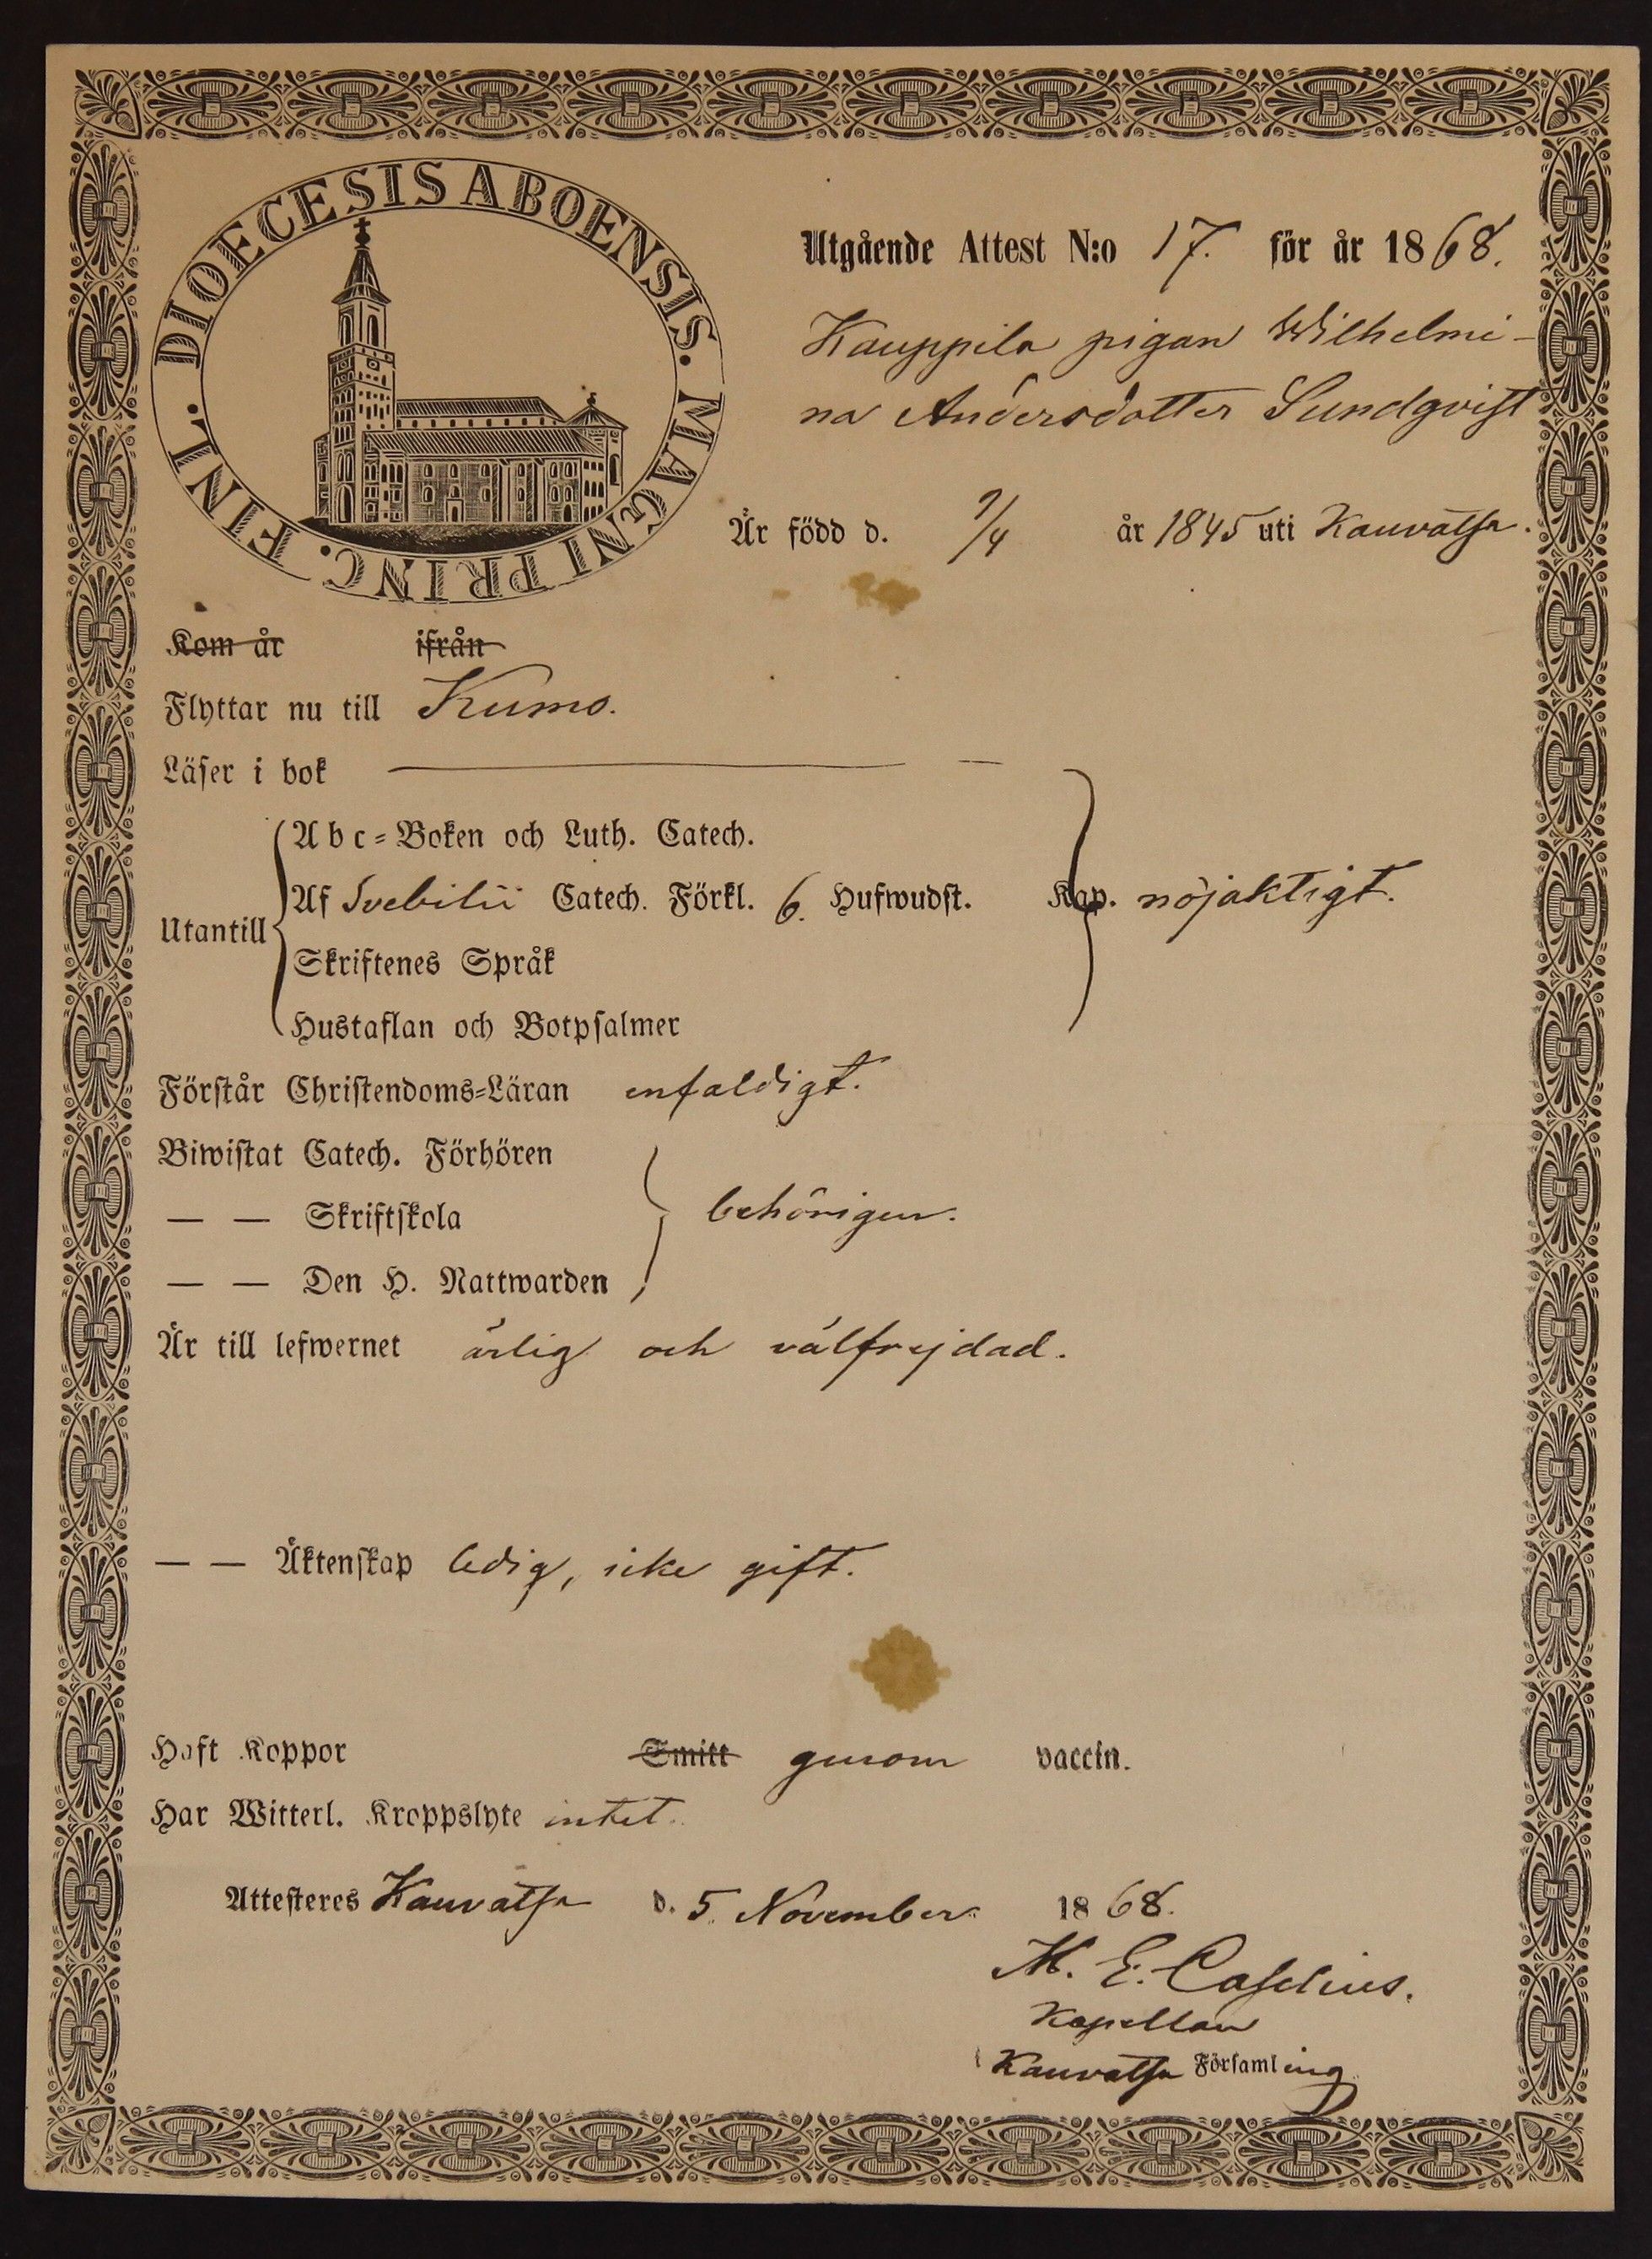 DIOECESIS ABOENSIS. MAGNI PRINC. FINL.
Utgående Attest N:o 17. för år 1868.
Kauppila pigan Wilhelmi-
na Andersdotter Sundqvist
Är född d. 9/4 år 1845 uti Kauvatsa.
Kom år ifrån
Flyttar nu till Kumo.
Läser i bok
Utantill
Abc=Boken och Luth. Catech.
Af Svebilii Catech. Förkl. 6. Hufwudst. Kap. nöjaktigt.
Skriftenes Språk
Hustaflan och Botpsalmer
Förstår Christendoms=Läran enfaldigt.
Biwistat Catech. Förhören
— — Skriftskola behörigen.
— — Den H. Nattwarden
Är till lefwernet ärlig och välfrejdad.
— — Äktenskap ledig, icke gift.
Haft Koppor Smitt genom vaccin.
Har Witterl. Kroppslyte intet.
Attesteres Kauvatsa d. 5. November 1868.
M. E. Caselius.
Kapellan
i Kauvatsa Församling